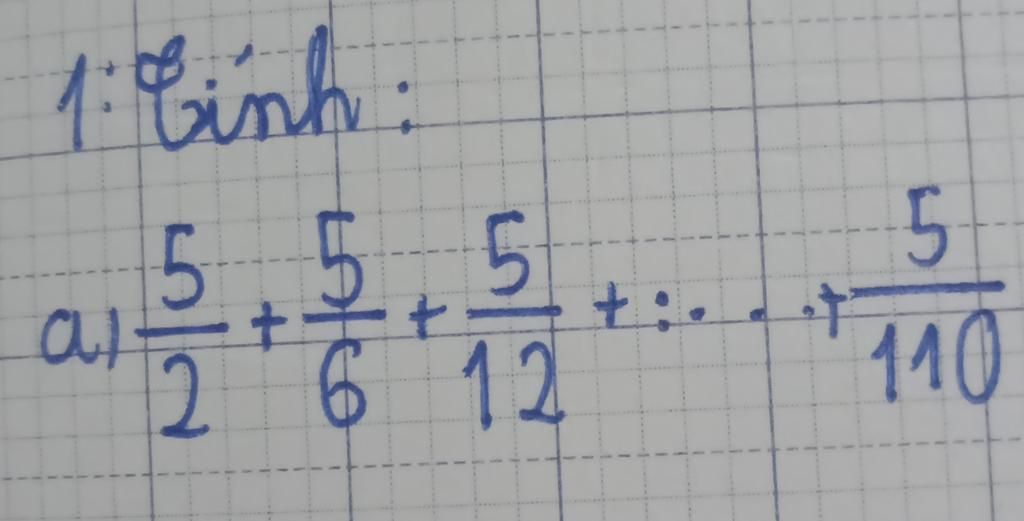 1: Tính:
a) 5/2 + 5/6 + 5/12 + : . . . + 5/110